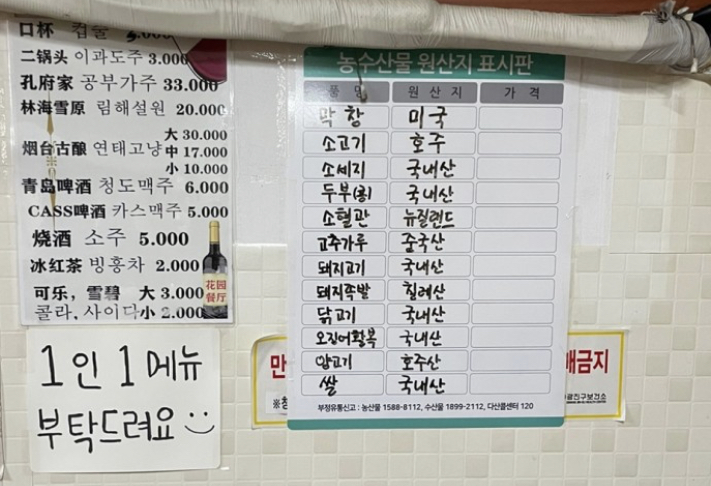 口杯 컵술
二锅头 이과도주 3.000
孔府家 공부가주 33.000
林海雪原 림해설원 20.000
大 30.000
烟台古酿 연태고냥 中 17.000
小 10.000
青岛啤酒 청도맥주 6.000
CASS啤酒 카스맥주 5.000
烧酒 소주 5.000
冰红茶 빙홍차 2.000
可乐，雪碧 大 3.000
콜라, 사이다 小 2.000
花园
餐厅
1인 1메뉴
부탁드려요
농수산물 원산지 표시판
품 명 원 산 지 가 격
막창 미국
소고기 호주
소세지 국내산
두부(콩) 국내산
소혈관 뉴질랜드
고추가루 중국산
돼지고기 국내산
돼지족발 칠레산
닭고기 국내산
오징어 국내산
양고기 호주산
쌀 국내산
부정유통신고 : 농산물 1588-8112, 수산물 1899-2112, 다산콜센터 120
만
매금지
광진구보건소